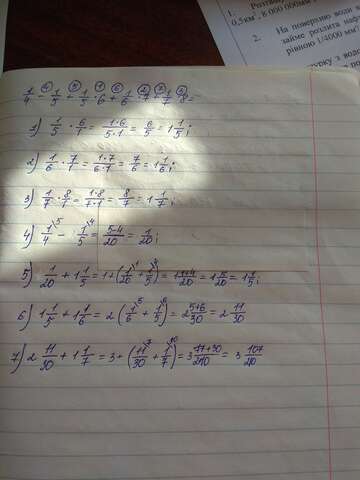 1.
2. На поверхню води
займе розлита
рівною 1/4000 мм²
1/4 - 1/5 + 1/5 · 6 + 1/6 · 7 + 1/7 · 8 =
1) 1/5 · 6/1 = 1·6/5·1 = 6/5 = 1 1/5;
2) 1/6 · 7/1 = 1·7/6·1 = 7/6 = 1 1/6;
3) 1/7 · 8/1 = 1·8/7·1 = 8/7 = 1 1/7;
4) 1/4 - 1/5 = 5-4/20 = 1/20;
5) 1/20 + 1 1/5 = 1 + (1/20 + 1/5) = 1 1+4/20 = 1 5/20 = 1 1/5;
6) 1 1/5 + 1 1/6 = 2 (1/6 + 1/5) = 2 5+6/30 = 2 11/30
7) 2 11/30 + 1 1/7 = 3 + (11/30 + 1/7) = 3 77+30/210 = 3 107/210